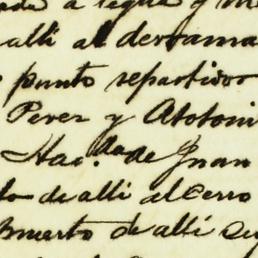 a legua y me
alli al derrama
punto repartidor
Perez y Atotoni
Hac.da de Juan
lo de alli al cerro
Muerto de alli se